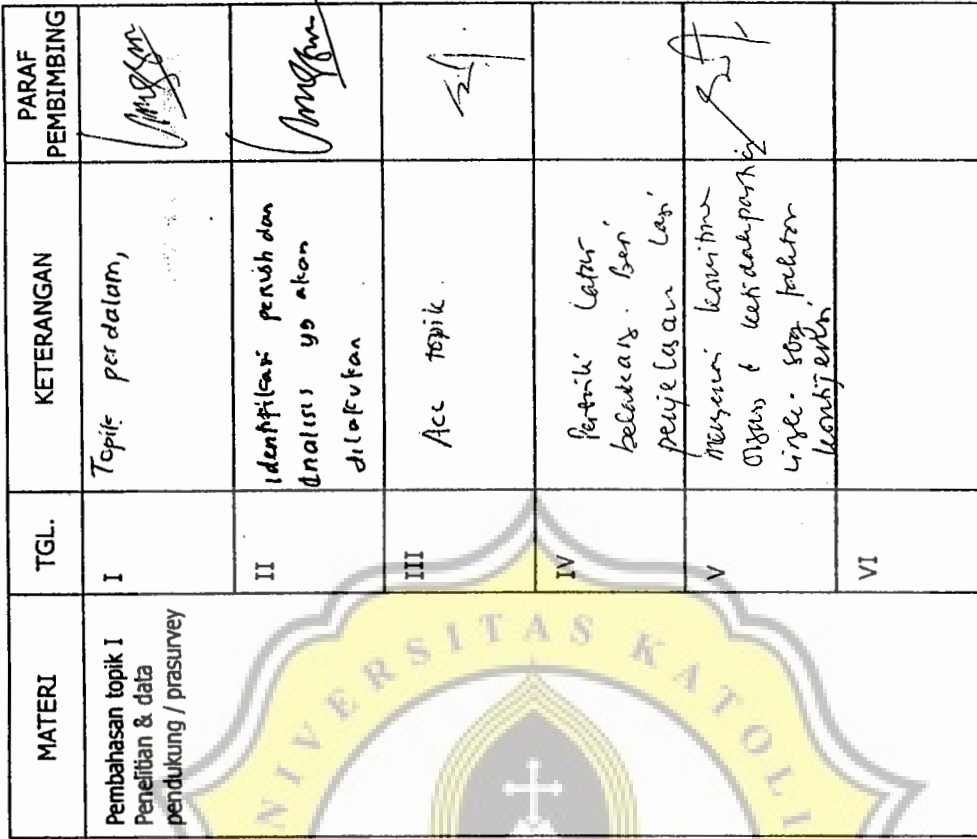 MATERI
TGL.
KETERANGAN
PARAF
PEMBIMBING
Pembahasan topik I
Penelitian & data
pendukung / prasurvey
I
Topik perdalam,
II
identifikasi perush dan
Analisis yg akan
dilakukan
III
Acc topik.
IV
Perbaiki latar
belakang. Beri
penjelasan lagi
V
mengenai
ketidakpastian
faktor
VI
UNIVERSITAS KATOLI